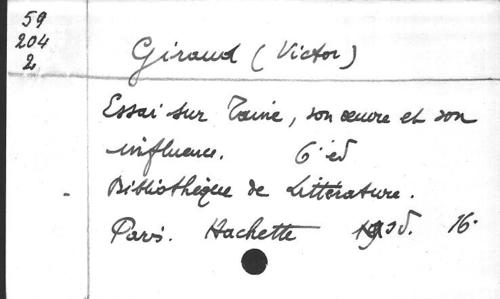 59
204
2
Giraud (Victor)
Essai sur Taine, son œuvre et son
influence. 6° éd
Bibliothèque de Littérature.
Paris. Hachette 16.